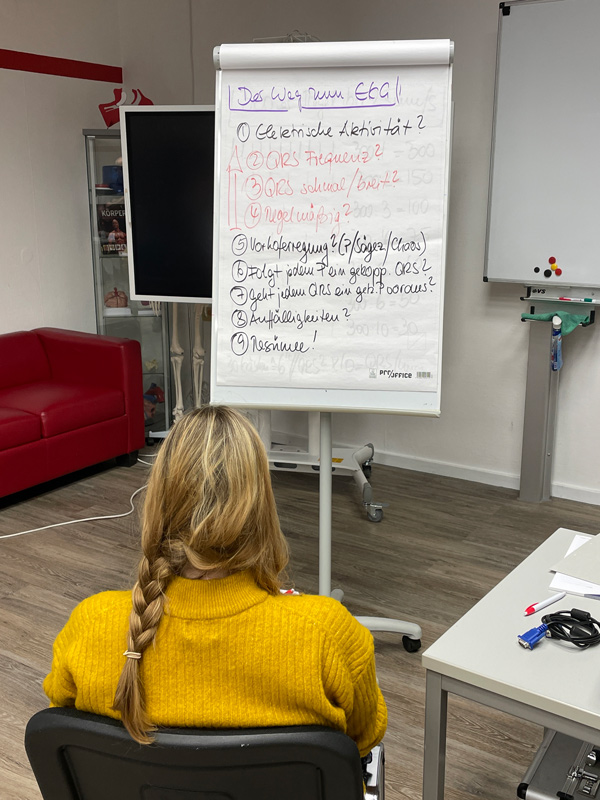 Der Weg zum EKG!
① Elektrische Aktivität?
② QRS Frequenz?
③ QRS schmal/breit?
④ Regelmäßig?
⑤ Vorhoferregung? (P/Sägez/Chaos)
⑥ Folgt jedem P ein gekopp. QRS?
⑦ Geht jedem QRS ein geh. P voraus?
⑧ Auffälligkeiten?
⑨ Resümee!
pro/office
KÖRPER